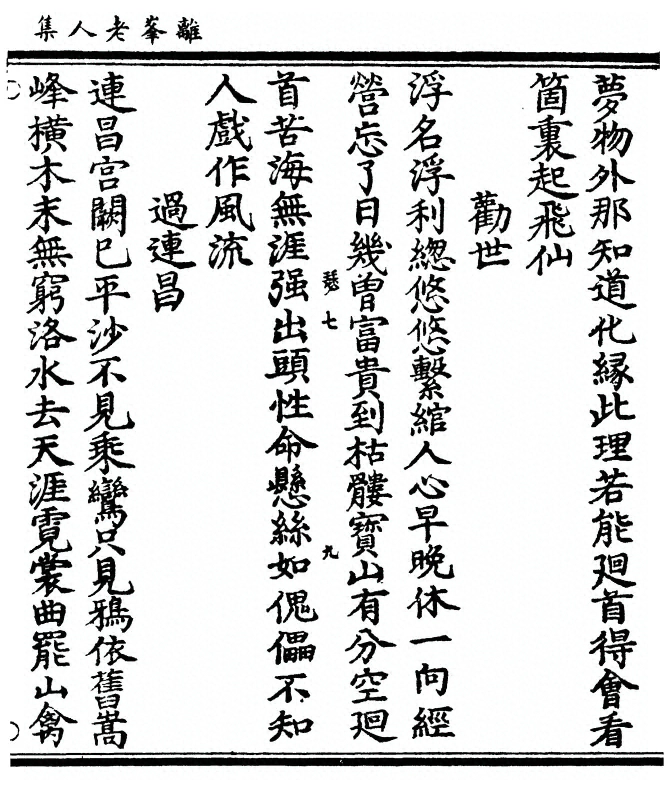 離峯老人集
夢物外那知道化緣此理若能廻首得會看
箇裏起飛仙
勸世
浮名浮利緫悠悠繫綰人心早晚休一向經
營忘了日幾曽富貴到枯髏寶山有分空廻
瑟七
九
首苦海無涯强出頭性命懸絲如傀儡不知
人戲作風流
過連昌
連昌宫闕巳平沙不見乘鸞只見鴉依舊嵩
峰橫木末無窮洛水去天涯霓裳曲罷山禽